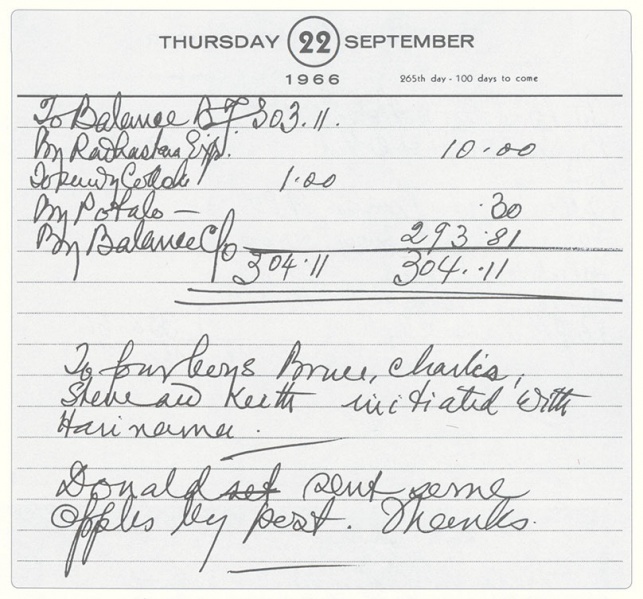 THURSDAY 22 SEPTEMBER
1966 265th day - 100 days to come
To Balance B/F 303.11.
By Radhastami Exp. 10.00
To Collect 1.00
By Potato — .30
By Balance C/o 293.81
304.11 304.11
To four boys Bruce, Charles,
Steve and Keith initiated with
Harinama.
Donald set sent some
apples by post. Thanks.